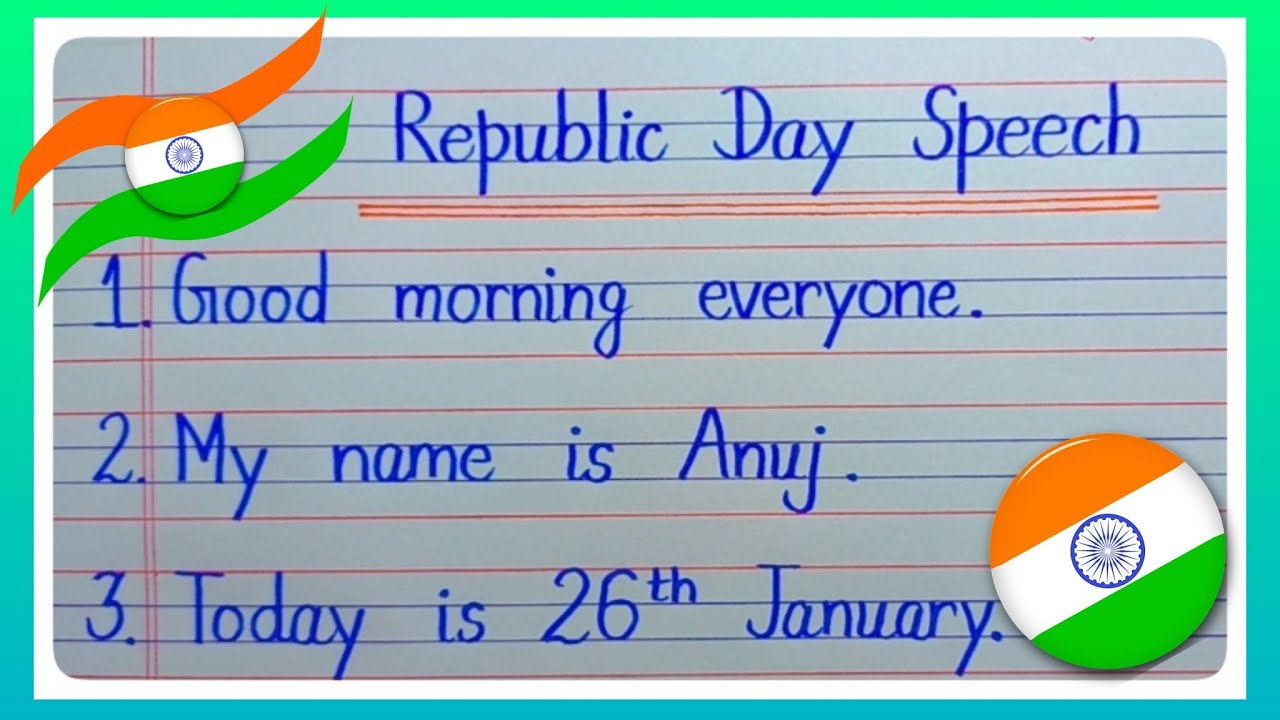 Republic Day Speech
1. Good morning everyone.
2. My name is Anuj.
3. Today is 26th January.